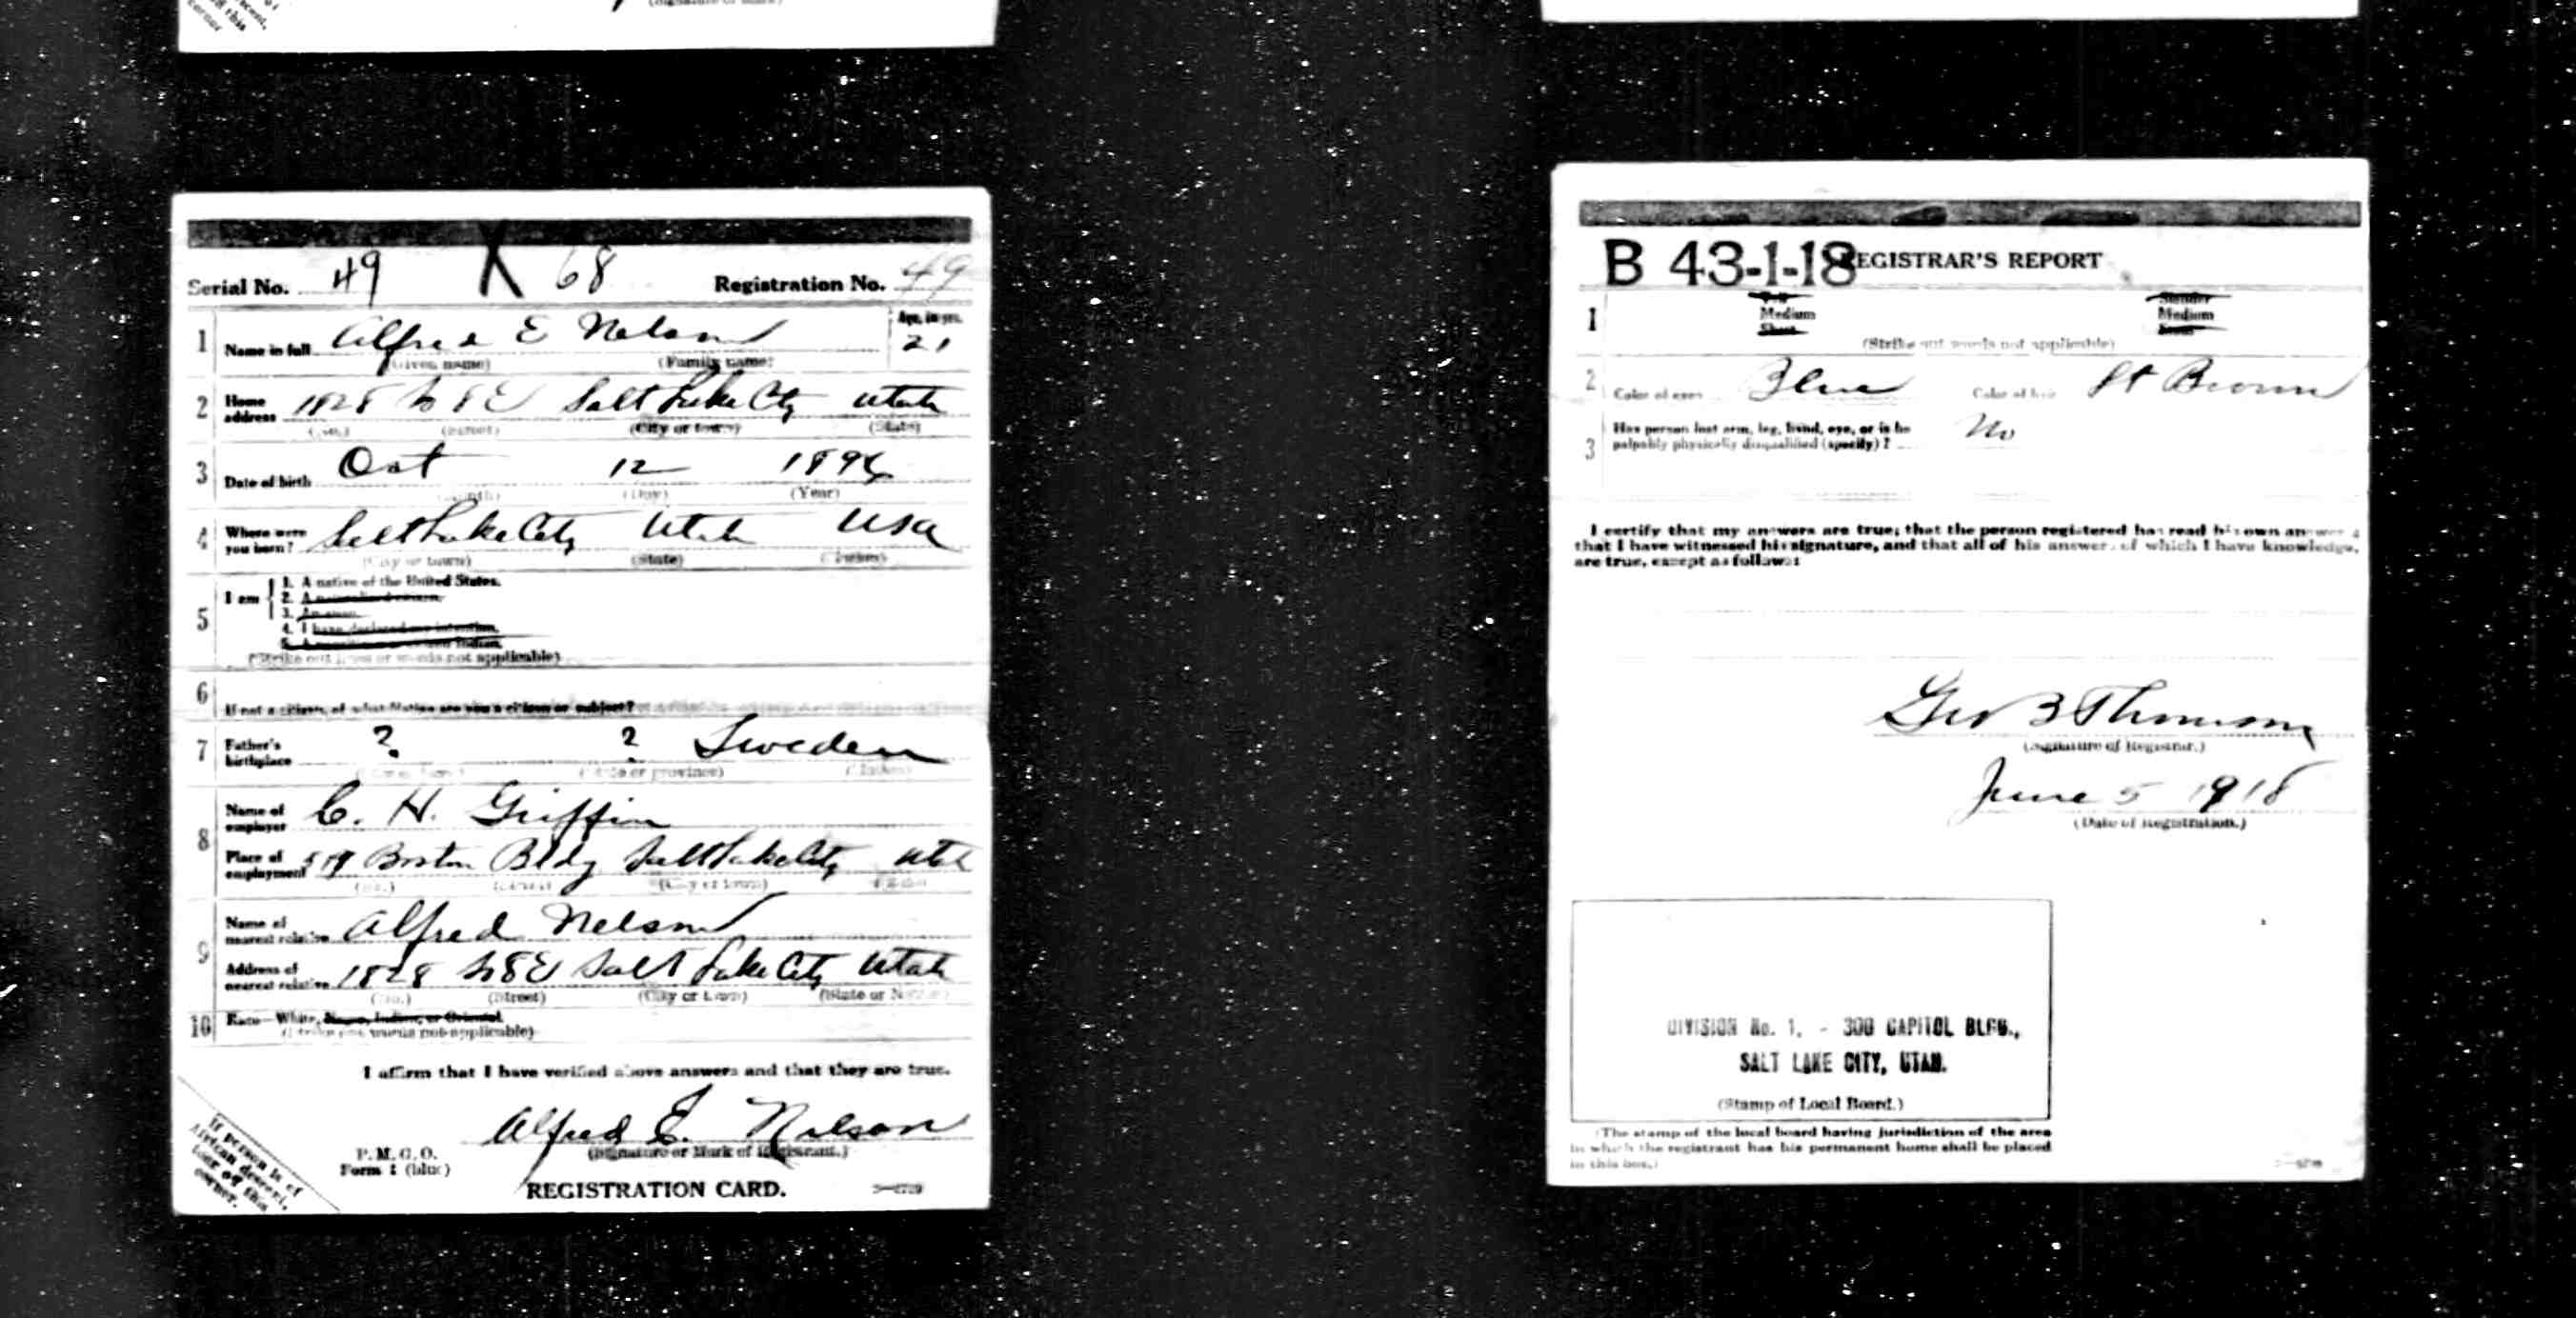 Serial No. 49 X 68 Registration No. 49
1 Name in full Alfred E Nelson Age, in yrs. 21
(Given name) (Family name)
2 Home address 1828 So 8 E Salt Lake City Utah
(No.) (Street) (City or town) (State)
3 Date of birth Oct 12 1896
(Month) (Day) (Year)
4 Where were you born? Salt Lake City Utah USA
(City or town) (State) (Nation)
5 I am
1. A native of the United States.
2. A naturalized citizen.
3. An alien.
4. I have declared my intention.
5. A Indian.
(Strike out lines or words not applicable)
6 If not a citizen, of what Nation are you a citizen or subject?
7 Father's birthplace ? ? Sweden
(City or town) (State or province) (Nation)
8 Name of employer C. H. Griffin
Place of employment Boston Bldg Salt Lake City Utah
(No.) (Street) (City or town) (State)
9 Name of nearest relative Alfred Nelson
Address of nearest relative 1828 So 8 E Salt Lake City Utah
(No.) (Street) (City or town) (State or Nation)
10 Race—White, Negro, Indian, or Oriental
(Strike out words not applicable)
I affirm that I have verified above answers and that they are true.
Alfred E. Nelson
(Signature or Mark of Registrant.)
P. M. G. O.
Form 1 (blue)
REGISTRATION CARD.
If person is of
African descent,
tear off this
corner.
B 43-1-18 REGISTRAR'S REPORT
1 Tall Slender
Medium Medium
Short Stout
(Strike out words not applicable)
2 Color of eyes Blue Color of hair Lt Brown
3 Has person lost arm, leg, hand, eye, or is he
palpably physically disqualified (specify)? No
I certify that my answers are true; that the person registered has read his own answers;
that I have witnessed his signature, and that all of his answers of which I have knowledge,
are true, except as follows:
Geo B Thomson
(Signature of Registrar.)
June 5 1918
(Date of Registration.)
DIVISION No. 1, - 300 CAPITOL BLDG.,
SALT LAKE CITY, UTAH.
(Stamp of Local Board.)
(The stamp of the local board having jurisdiction of the area
in which the registrant has his permanent home shall be placed
in this box.)